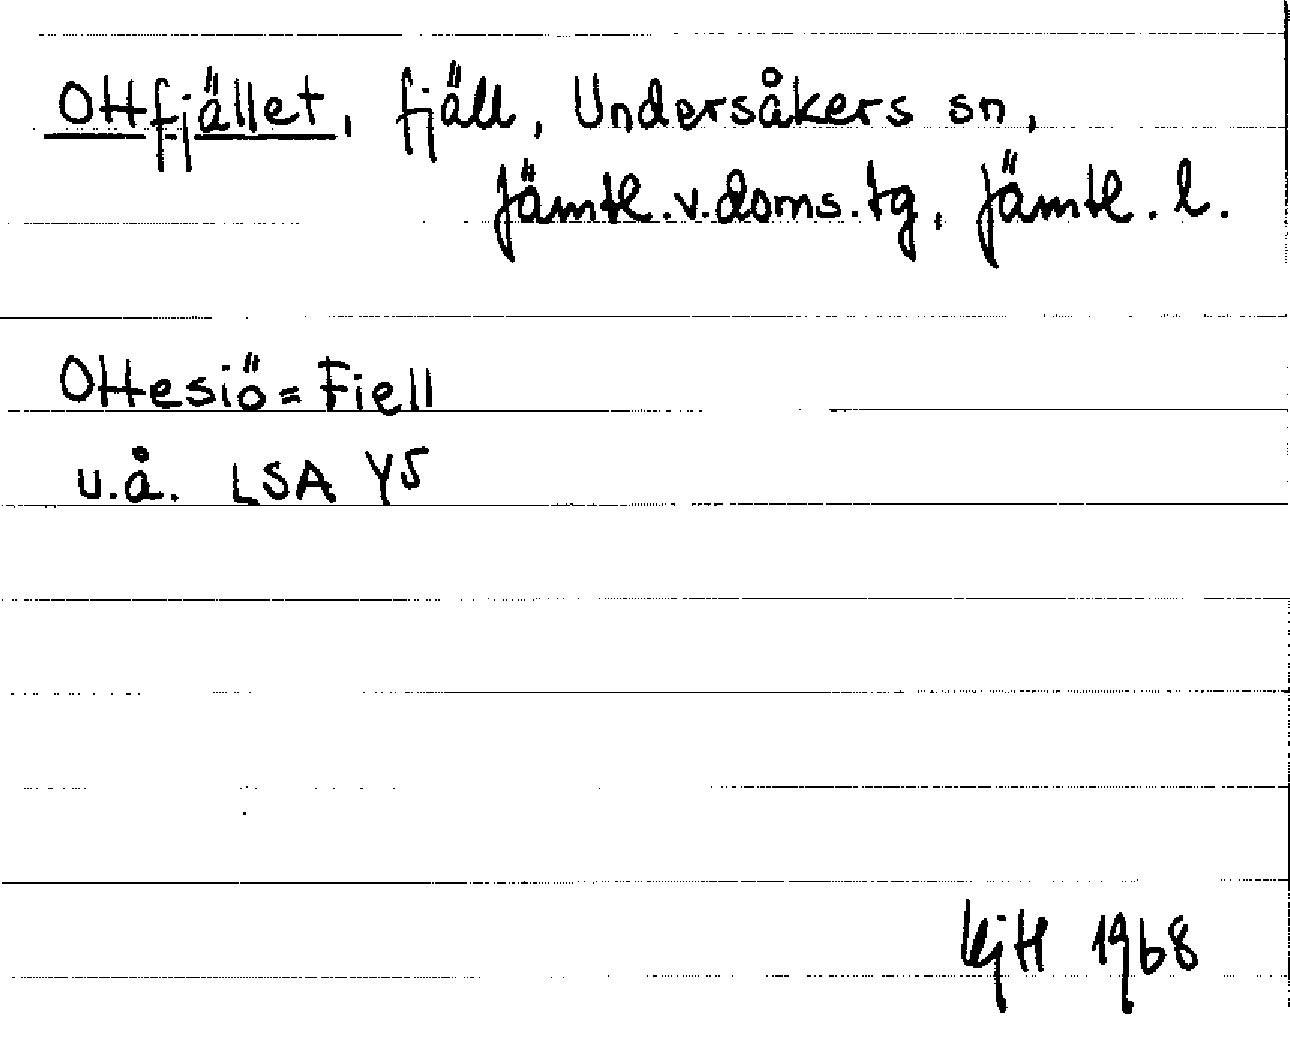 Ottfjället, fjäll, Undersåkers sn,
Jämtl.v.doms.tg, Jämtl. l.
Ottesiö=Fiell
u.å. LSA Y5
KjH 1968